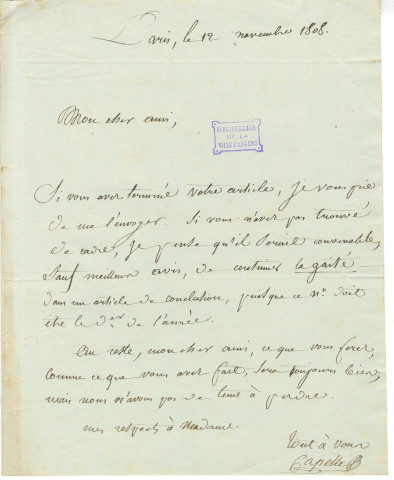 Paris, le 12 novembre 1808.
Mon cher ami,
BIBLIOTHEQUE
DE LA
VILLE D'ANGERS
Si vous avez terminé votre article, je vous prie
de me l'envoyer. Si vous n'avez pas trouvé
de cadre, je pense qu'il serait convenable,
sauf meilleur avis, de continuer la gaîté
dans un article de conclusion, puisque ce n° doit
être le der de l'année.
Au reste, mon cher ami, ce que vous ferez,
comme ce que vous avez fait, sera toujours bien;
mais nous n'avons pas de tems à perdre.
mes respects à Madame.
Tout à vous
Capelle